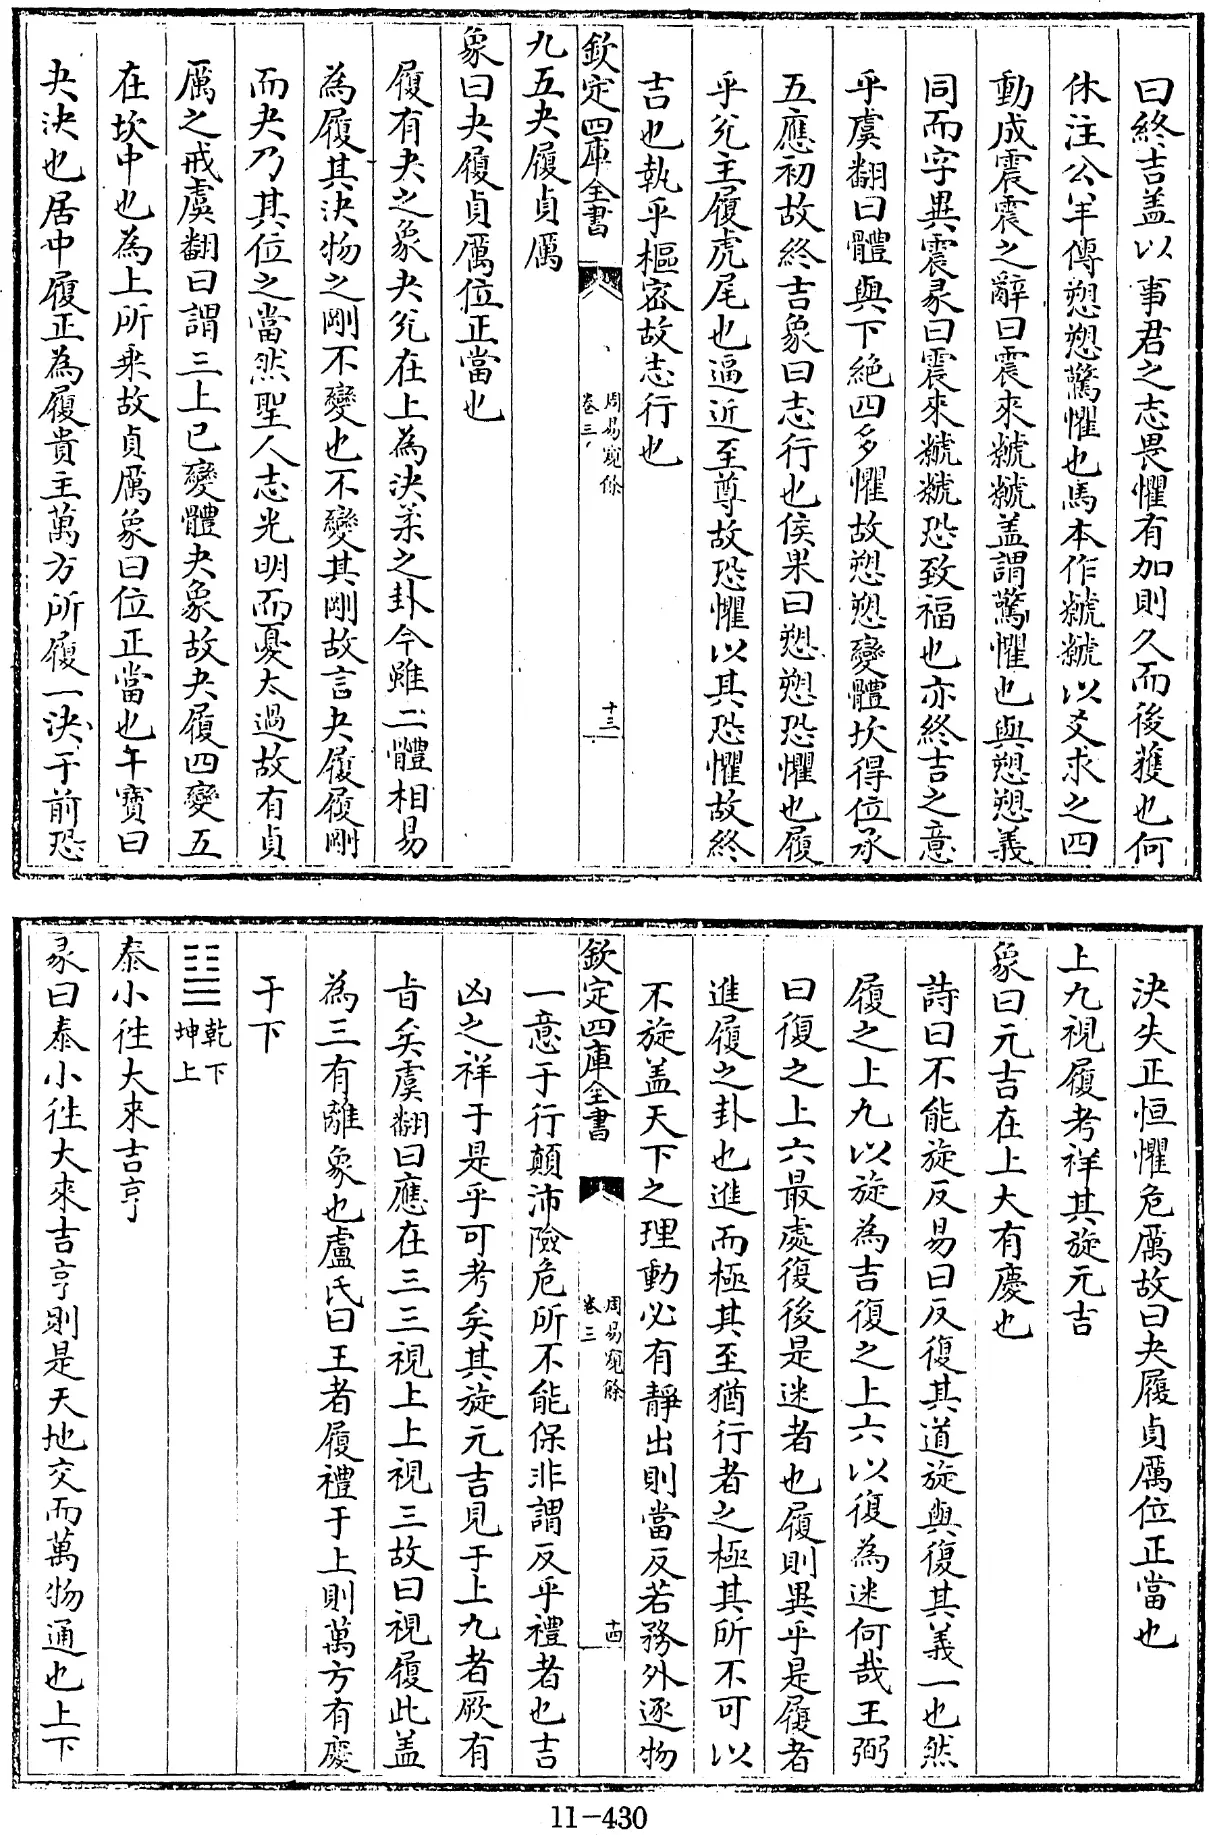 曰終吉盖以事君之志畏懼有加則久而後獲也何
休注公羊傳愬愬驚懼也馬本作虩虩以爻求之四
動成震震之辭曰震來虩虩盖謂驚懼也與愬愬義
同而字異震彖曰震來虩虩恐致福也亦終吉之意
乎虞翻曰體與下絶四多懼故愬愬變體坎得位承
五應初故終吉象曰志行也侯果曰愬愬恐懼也履
乎兊主履虎尾也逼近至尊故恐懼以其恐懼故終
吉也執乎樞宻故志行也
欽定四庫全書
周易窺餘
卷三
十三
九五夬履貞厲
象曰夬履貞厲位正當也
履有夬之象夬兊在上為決柔之卦今雖二體相易
為履其決物之剛不變也不變其剛故言夬履履剛
而夬乃其位之當然聖人志光明而憂太過故有貞
厲之戒虞翻曰謂三上已變體夬象故夬履四變五
在坎中也為上所乗故貞厲象曰位正當也干寳曰
夬決也居中履正為履貴主萬方所履一決于前恐
決失正恒懼危厲故曰夬履貞厲位正當也
上九視履考祥其旋元吉
象曰元吉在上大有慶也
詩曰不能旋反易曰反復其道旋與復其義一也然
履之上九以旋為吉復之上六以復為迷何哉王弼
曰復之上六最處復後是迷者也履則異乎是履者
進履之卦也進而極其至猶行者之極其所不可以
不旋盖天下之理動必有靜出則當反若務外逐物
欽定四庫全書
周易窺餘
卷三
十四
一意于行顛沛險危所不能保非謂反乎禮者也吉
凶之祥于是乎可考矣其旋元吉見于上九者厥有
旨矣虞翻曰應在三三視上上視三故曰視履此盖
為三有離象也盧氏曰王者履禮于上則萬方有慶
于下
䷊乾下
坤上
泰小徃大來吉亨
彖曰泰小徃大來吉亨則是天地交而萬物通也上下
11-430